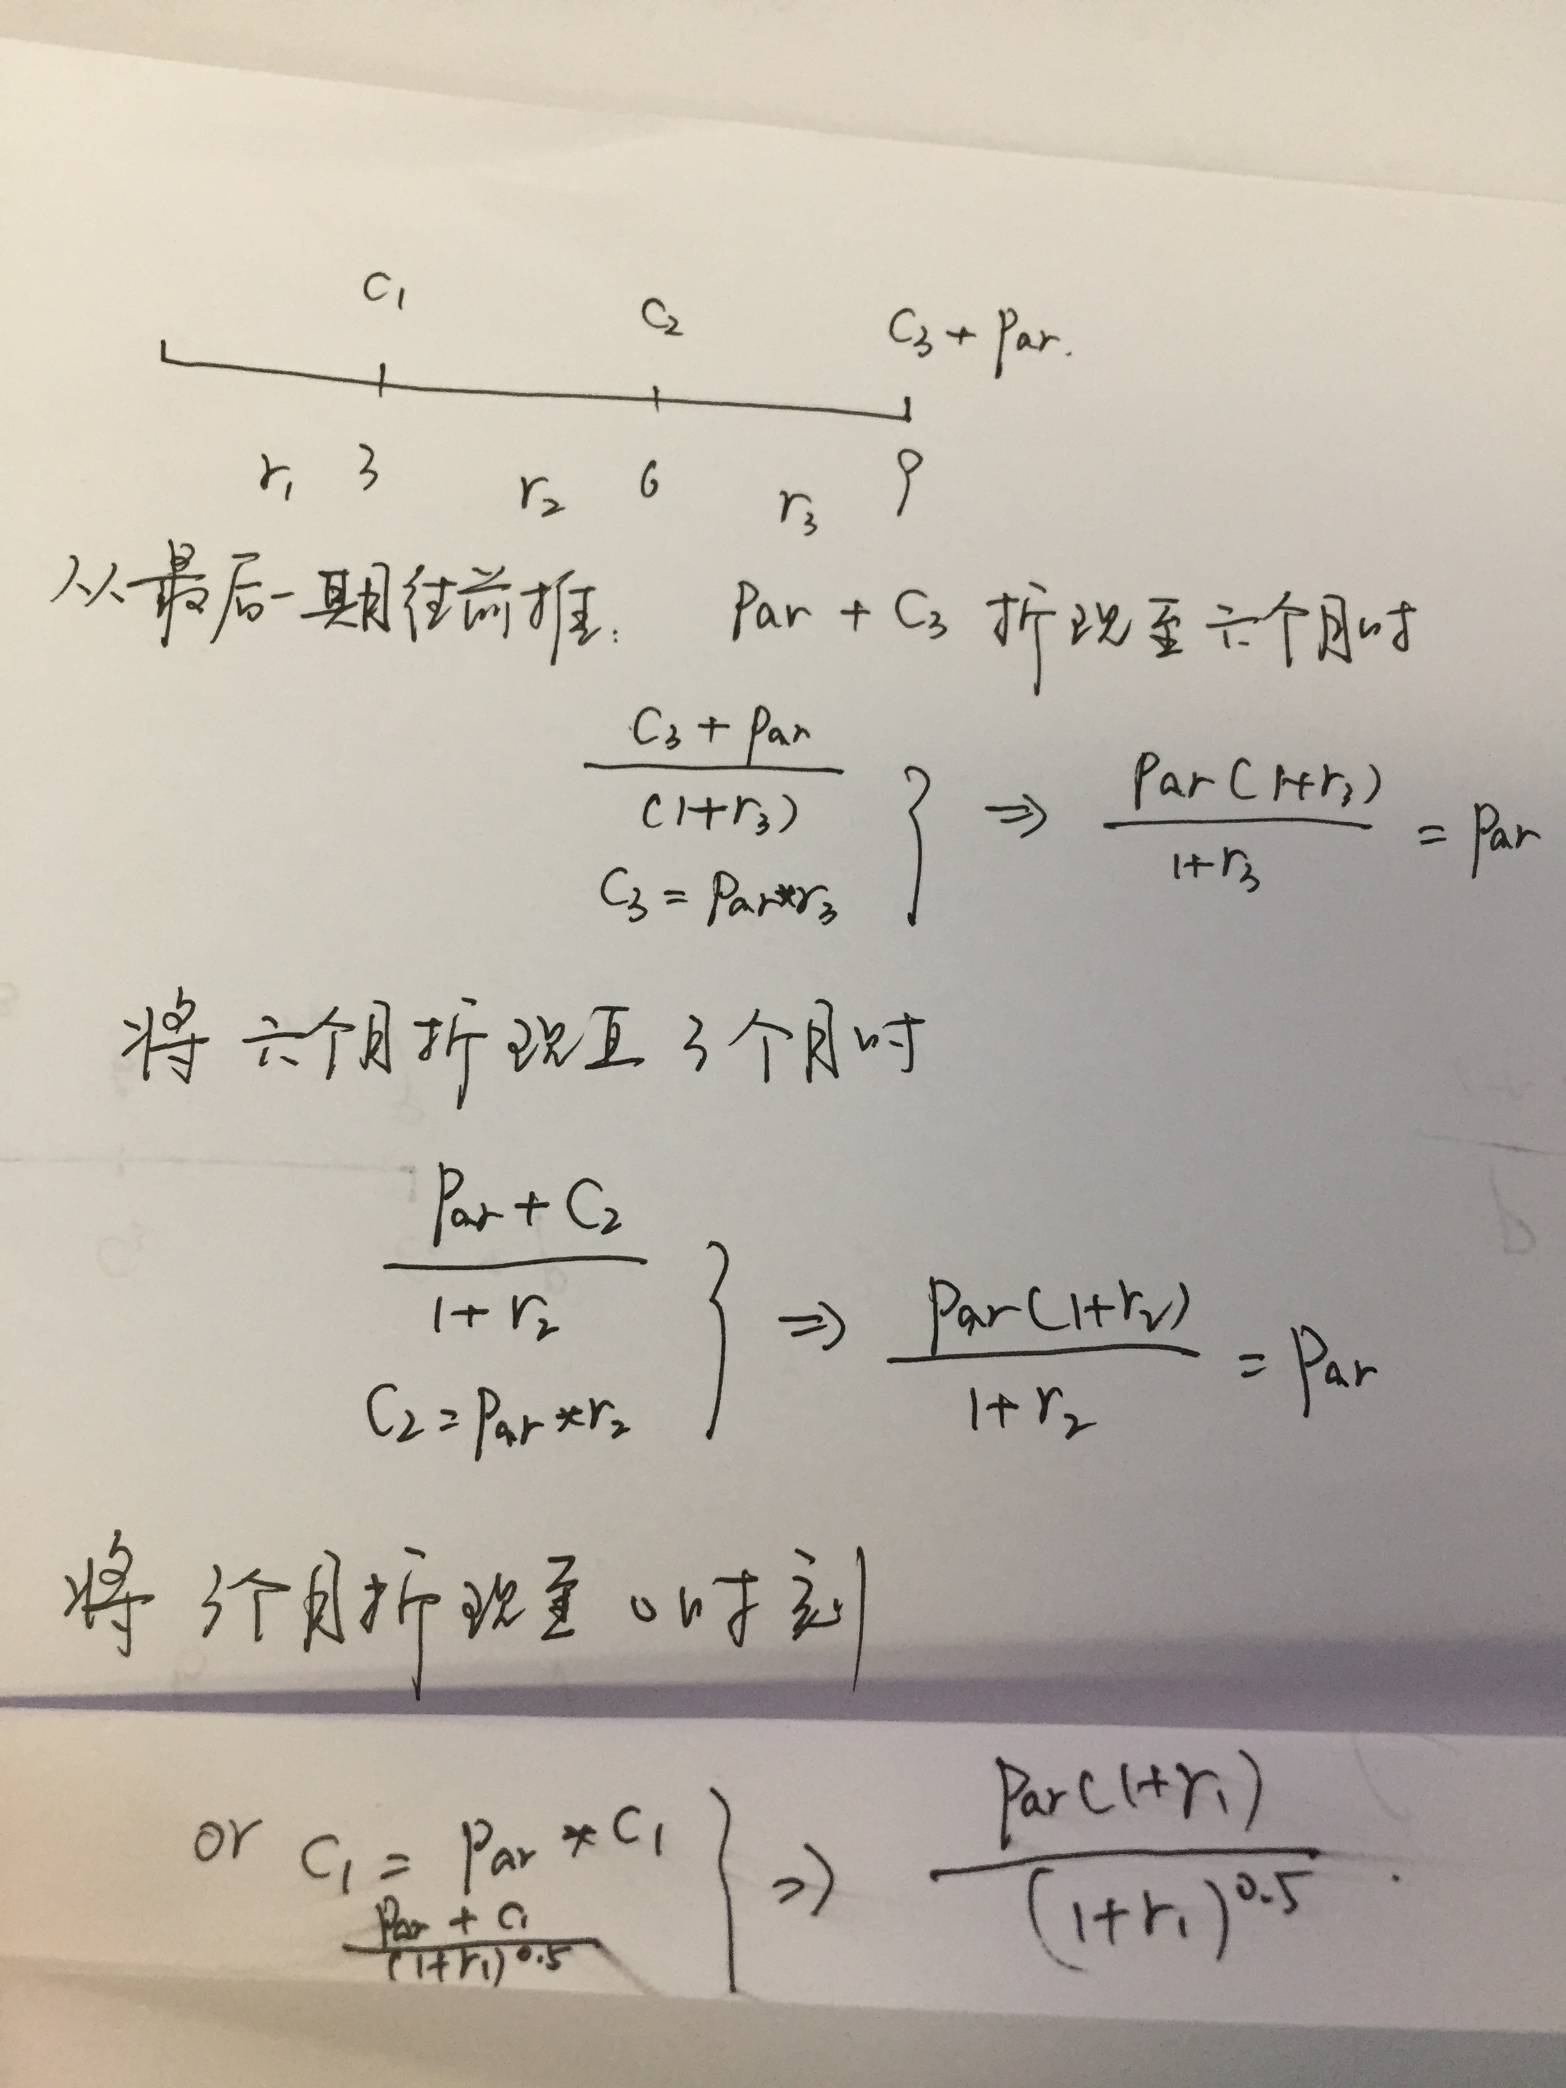 C₁ C₂ C₃ + Par.
r₁ 3 r₂ 6 r₃ 9
从最后一期往前推: Par + C₃ 折现至六个月时
(C₃ + Par)/(1+r₃)
C₃ = Par*r₃ } ⇒ Par(1+r₃)/(1+r₃) = Par
将六个月折现至3个月时
(Par + C₂)/(1+r₂)
C₂ = Par*r₂ } ⇒ Par(1+r₂)/(1+r₂) = Par
将3个月折现至0时刻
or C₁ = Par * C₁
(Par + C₁)/(1+r₁)^0.5 } ⇒ Par(1+r₁)/(1+r₁)^0.5.